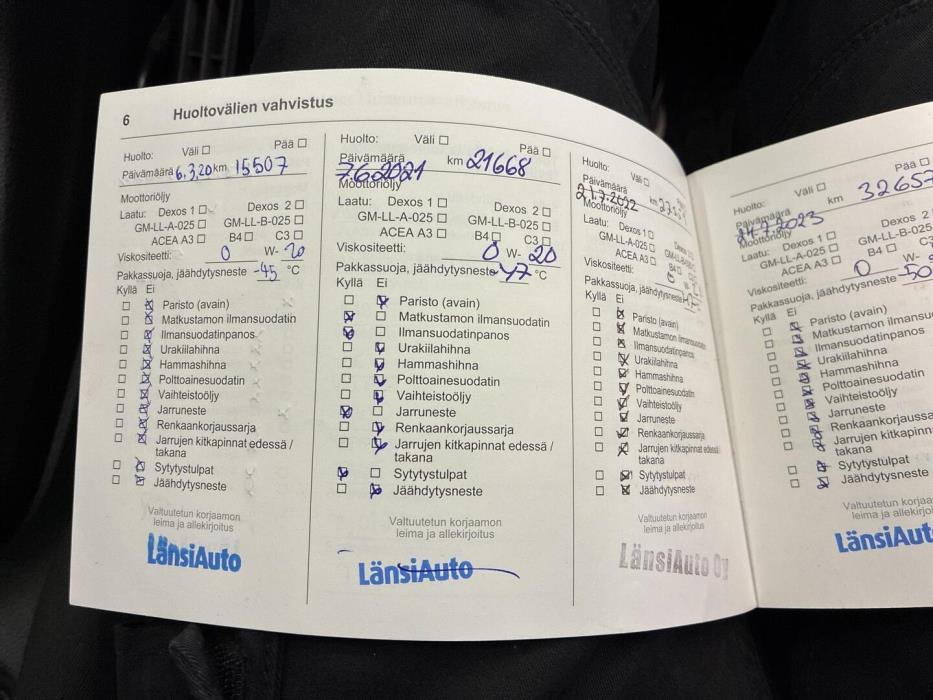 6 Huoltovälien vahvistus
Huolto: Väli Pää
Päivämäärä 6.3.20 km 15507
Moottoriöljy
Laatu: Dexos 1 Dexos 2
GM-LL-A-025 GM-LL-B-025
ACEA A3 B4 C3
Viskositeetti: 0 W- 20
Pakkassuoja, jäähdytysneste -45 °C
Kyllä Ei
Paristo (avain)
Matkustamon ilmansuodatin
Ilmansuodatinpanos
Urakiilahihna
Hammashihna
Polttoainesuodatin
Vaihteistoöljy
Jarruneste
Renkaankorjaussarja
Jarrujen kitkapinnat edessä /
takana
Sytytystulpat
Jäähdytysneste
Valtuutetun korjaamon
leima ja allekirjoitus
LänsiAuto
Huolto: Väli Pää
Päivämäärä 7.6.2021 km 21668
Moottoriöljy
Laatu: Dexos 1 Dexos 2
GM-LL-A-025 GM-LL-B-025
ACEA A3 B4 C3
Viskositeetti: 0 W- 20
Pakkassuoja, jäähdytysneste -47 °C
Kyllä Ei
Paristo (avain)
Matkustamon ilmansuodatin
Ilmansuodatinpanos
Urakiilahihna
Hammashihna
Polttoainesuodatin
Vaihteistoöljy
Jarruneste
Renkaankorjaussarja
Jarrujen kitkapinnat edessä /
takana
Sytytystulpat
Jäähdytysneste
Valtuutetun korjaamon
leima ja allekirjoitus
LänsiAuto
Huolto: Väli
Päivämäärä 21.7.2022 km
Moottoriöljy
Laatu: Dexos 1
GM-LL-A-025
ACEA A3 B4
Viskositeetti: 0
Pakkassuoja, jäähdytysneste
Kyllä Ei
Paristo (avain)
Matkustamon ilmansuodatin
Ilmansuodatinpanos
Urakiilahihna
Hammashihna
Polttoainesuodatin
Vaihteistoöljy
Jarruneste
Renkaankorjaussarja
Jarrujen kitkapinnat edessä
takana
Sytytystulpat
Jäähdytysneste
Valtuutetun korjaamon
leima ja allekirjoitus
LänsiAuto Oy
Huolto: Väli Pää
Päivämäärä 24.7.2023 km 32657
Moottoriöljy
Laatu: Dexos 1 Dexos 2
GM-LL-A-025 GM-LL-B-025
ACEA A3 B4 C3
Viskositeetti: 0 W-
Pakkassuoja, jäähdytysneste -50
Kyllä Ei
Paristo (avain)
Matkustamon ilmansuo
Ilmansuodatinpanos
Urakiilahihna
Hammashihna
Polttoainesuodatin
Vaihteistoöljy
Jarruneste
Renkaankorjaussa
Jarrujen kitkapinn
takana
Sytytystulpat
Jäähdytysneste
Valtuutetun korjaa
leima ja allekirjoi
LänsiAut